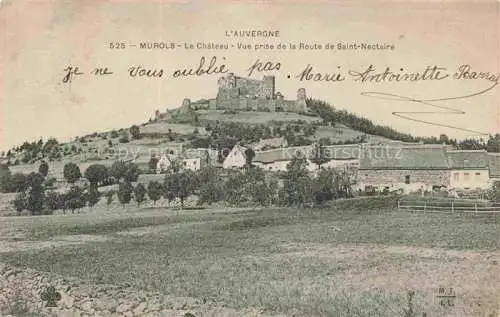 L'AUVERGNE
525 - MUROLS - Le Château - Vue prise de la Route de Saint-Nectaire
je ne vous oublie pas. Marie Antoinette
M.T.
I.L.